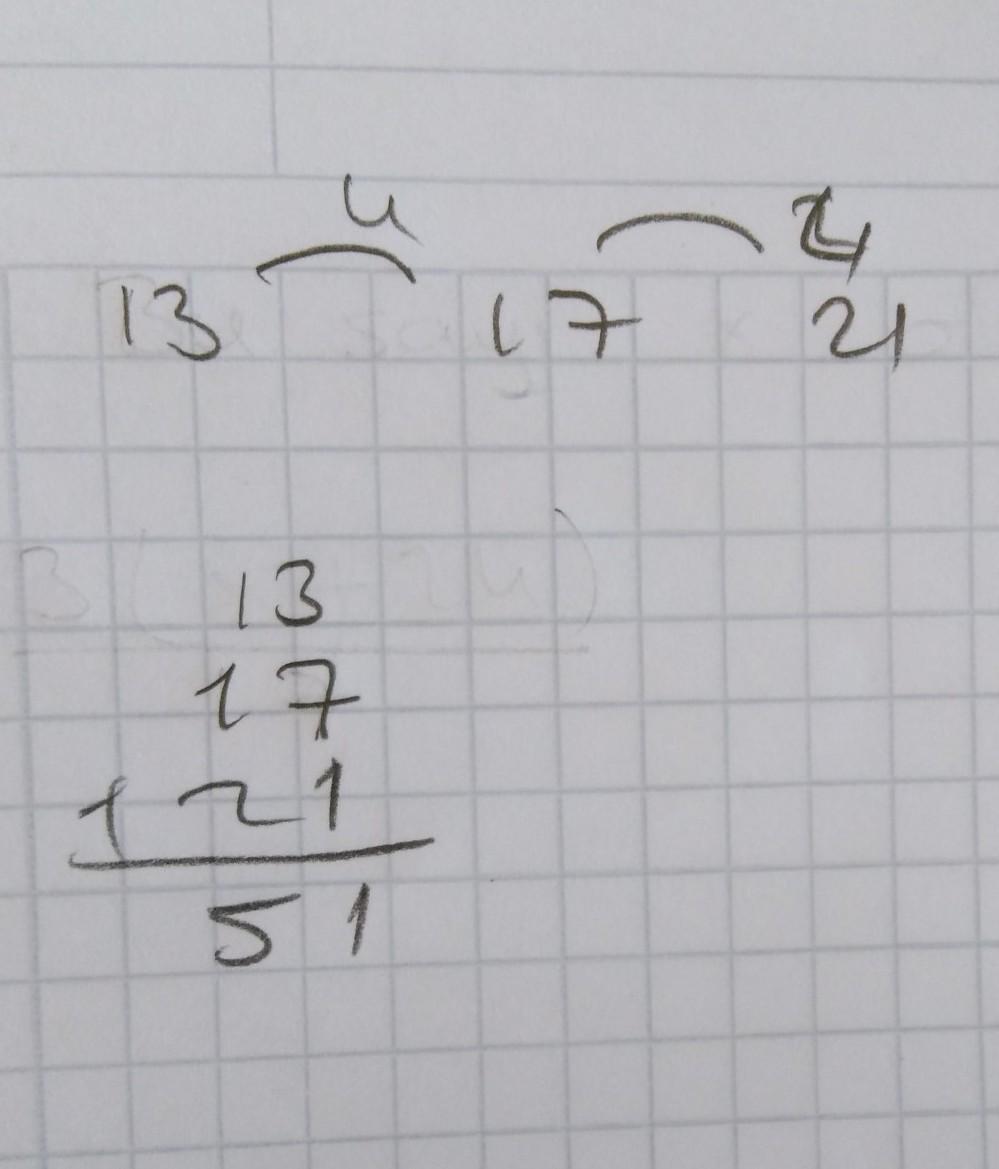 4 4
13 17 21
13
17
+ 21
51